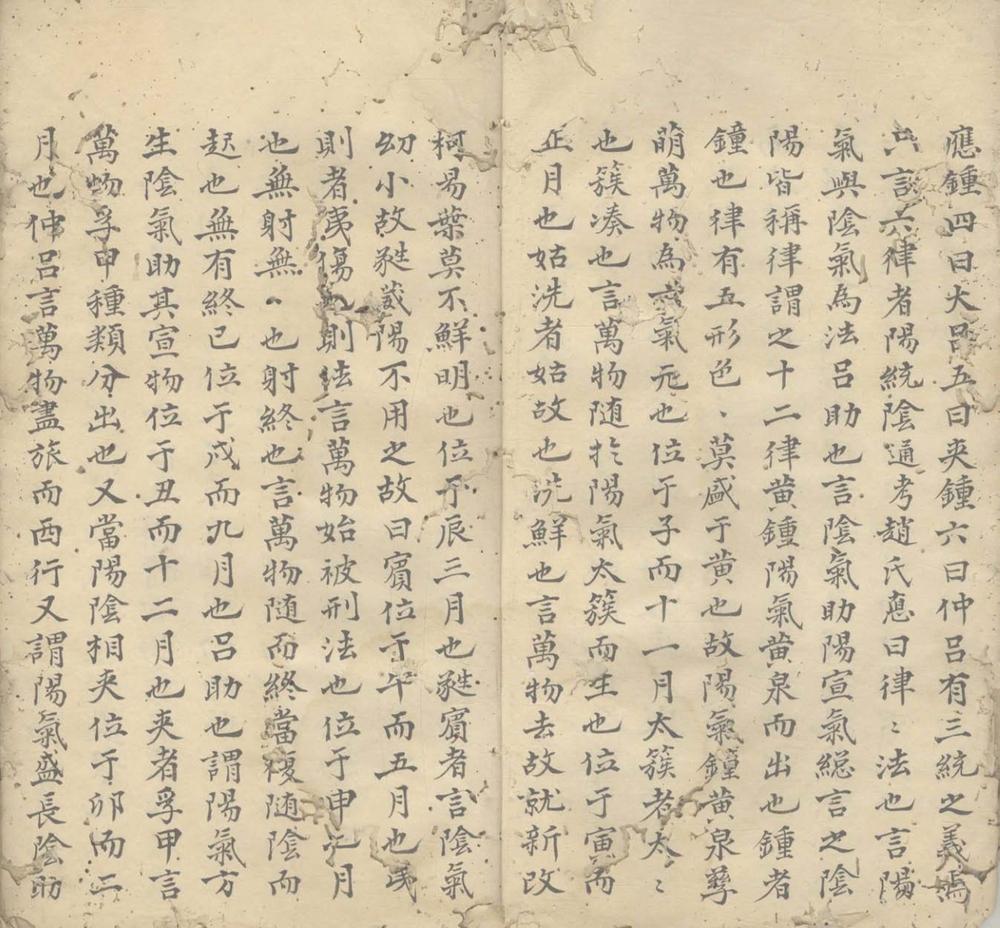 應鍾四曰大呂五曰夾鍾六曰仲呂有三統之義焉
六言六律者陽統陰通考趙氏惪曰律〻法也言陽
氣與陰氣為法呂助也言陰氣助陽宣氣緫言之陰
陽皆稱律謂之十二律黄鍾陽氣黄泉而出也鍾者
鐘也律有五形色、莫盛于黄也故陽氣鐘黄泉孳
萌萬物為六氣元也位于子而十一月太簇者太〻
也簇凑也言萬物随扵陽氣太簇而生也位于寅而
正月也姑洗者姑故也洗鮮也言萬物去故就新改
柯易葉莫不鮮明也位于辰三月也蕤賓者言陰氣
幼小故蕤蕤陽不用之故曰賓位于午而五月也夷
則者夷傷也則法言萬物始被刑法也位于申七月
也無射無、也射終也言萬物随而終當複随陰而
起也無有終已位于戍而九月也呂助也謂陽氣方
生陰氣助其宣物位于丑而十二月也夾者孚甲言
萬物孚甲種類分出也又當陽陰相夾位于卯而二
月也仲呂言萬物盡旅而西行又謂陽氣盛長陰助